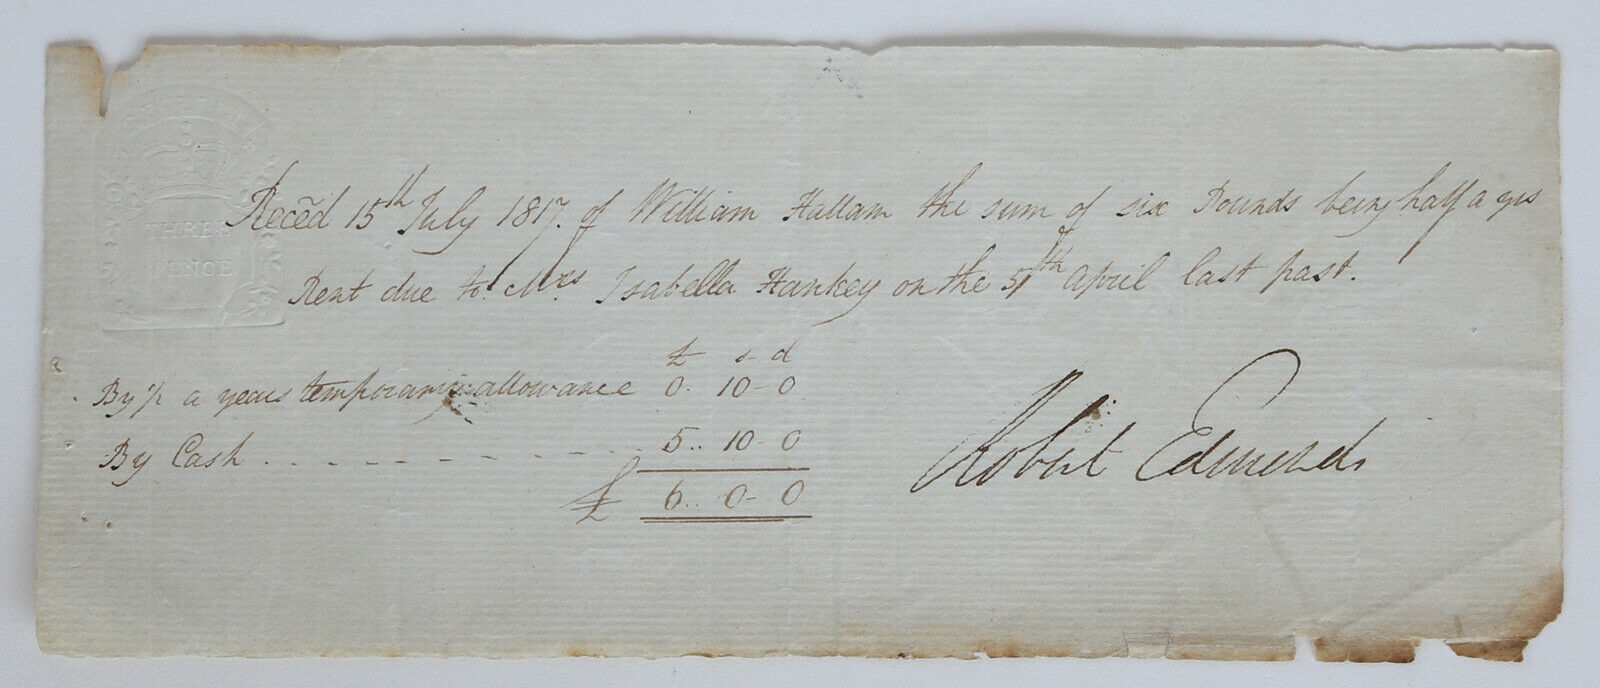 THREE
PENCE
Recẽd 15th July 1817. of William Hallam the sum of six Pounds being half a yrs
Rent due to Mrs Isabella Hankey on the 5th of April last past.
£ s d
By a years temporary allowance 0. 10-0
By Cash . . . . . . . . . . . 5.. 10-0
£ 6.. 0-0
Robert Edmonds